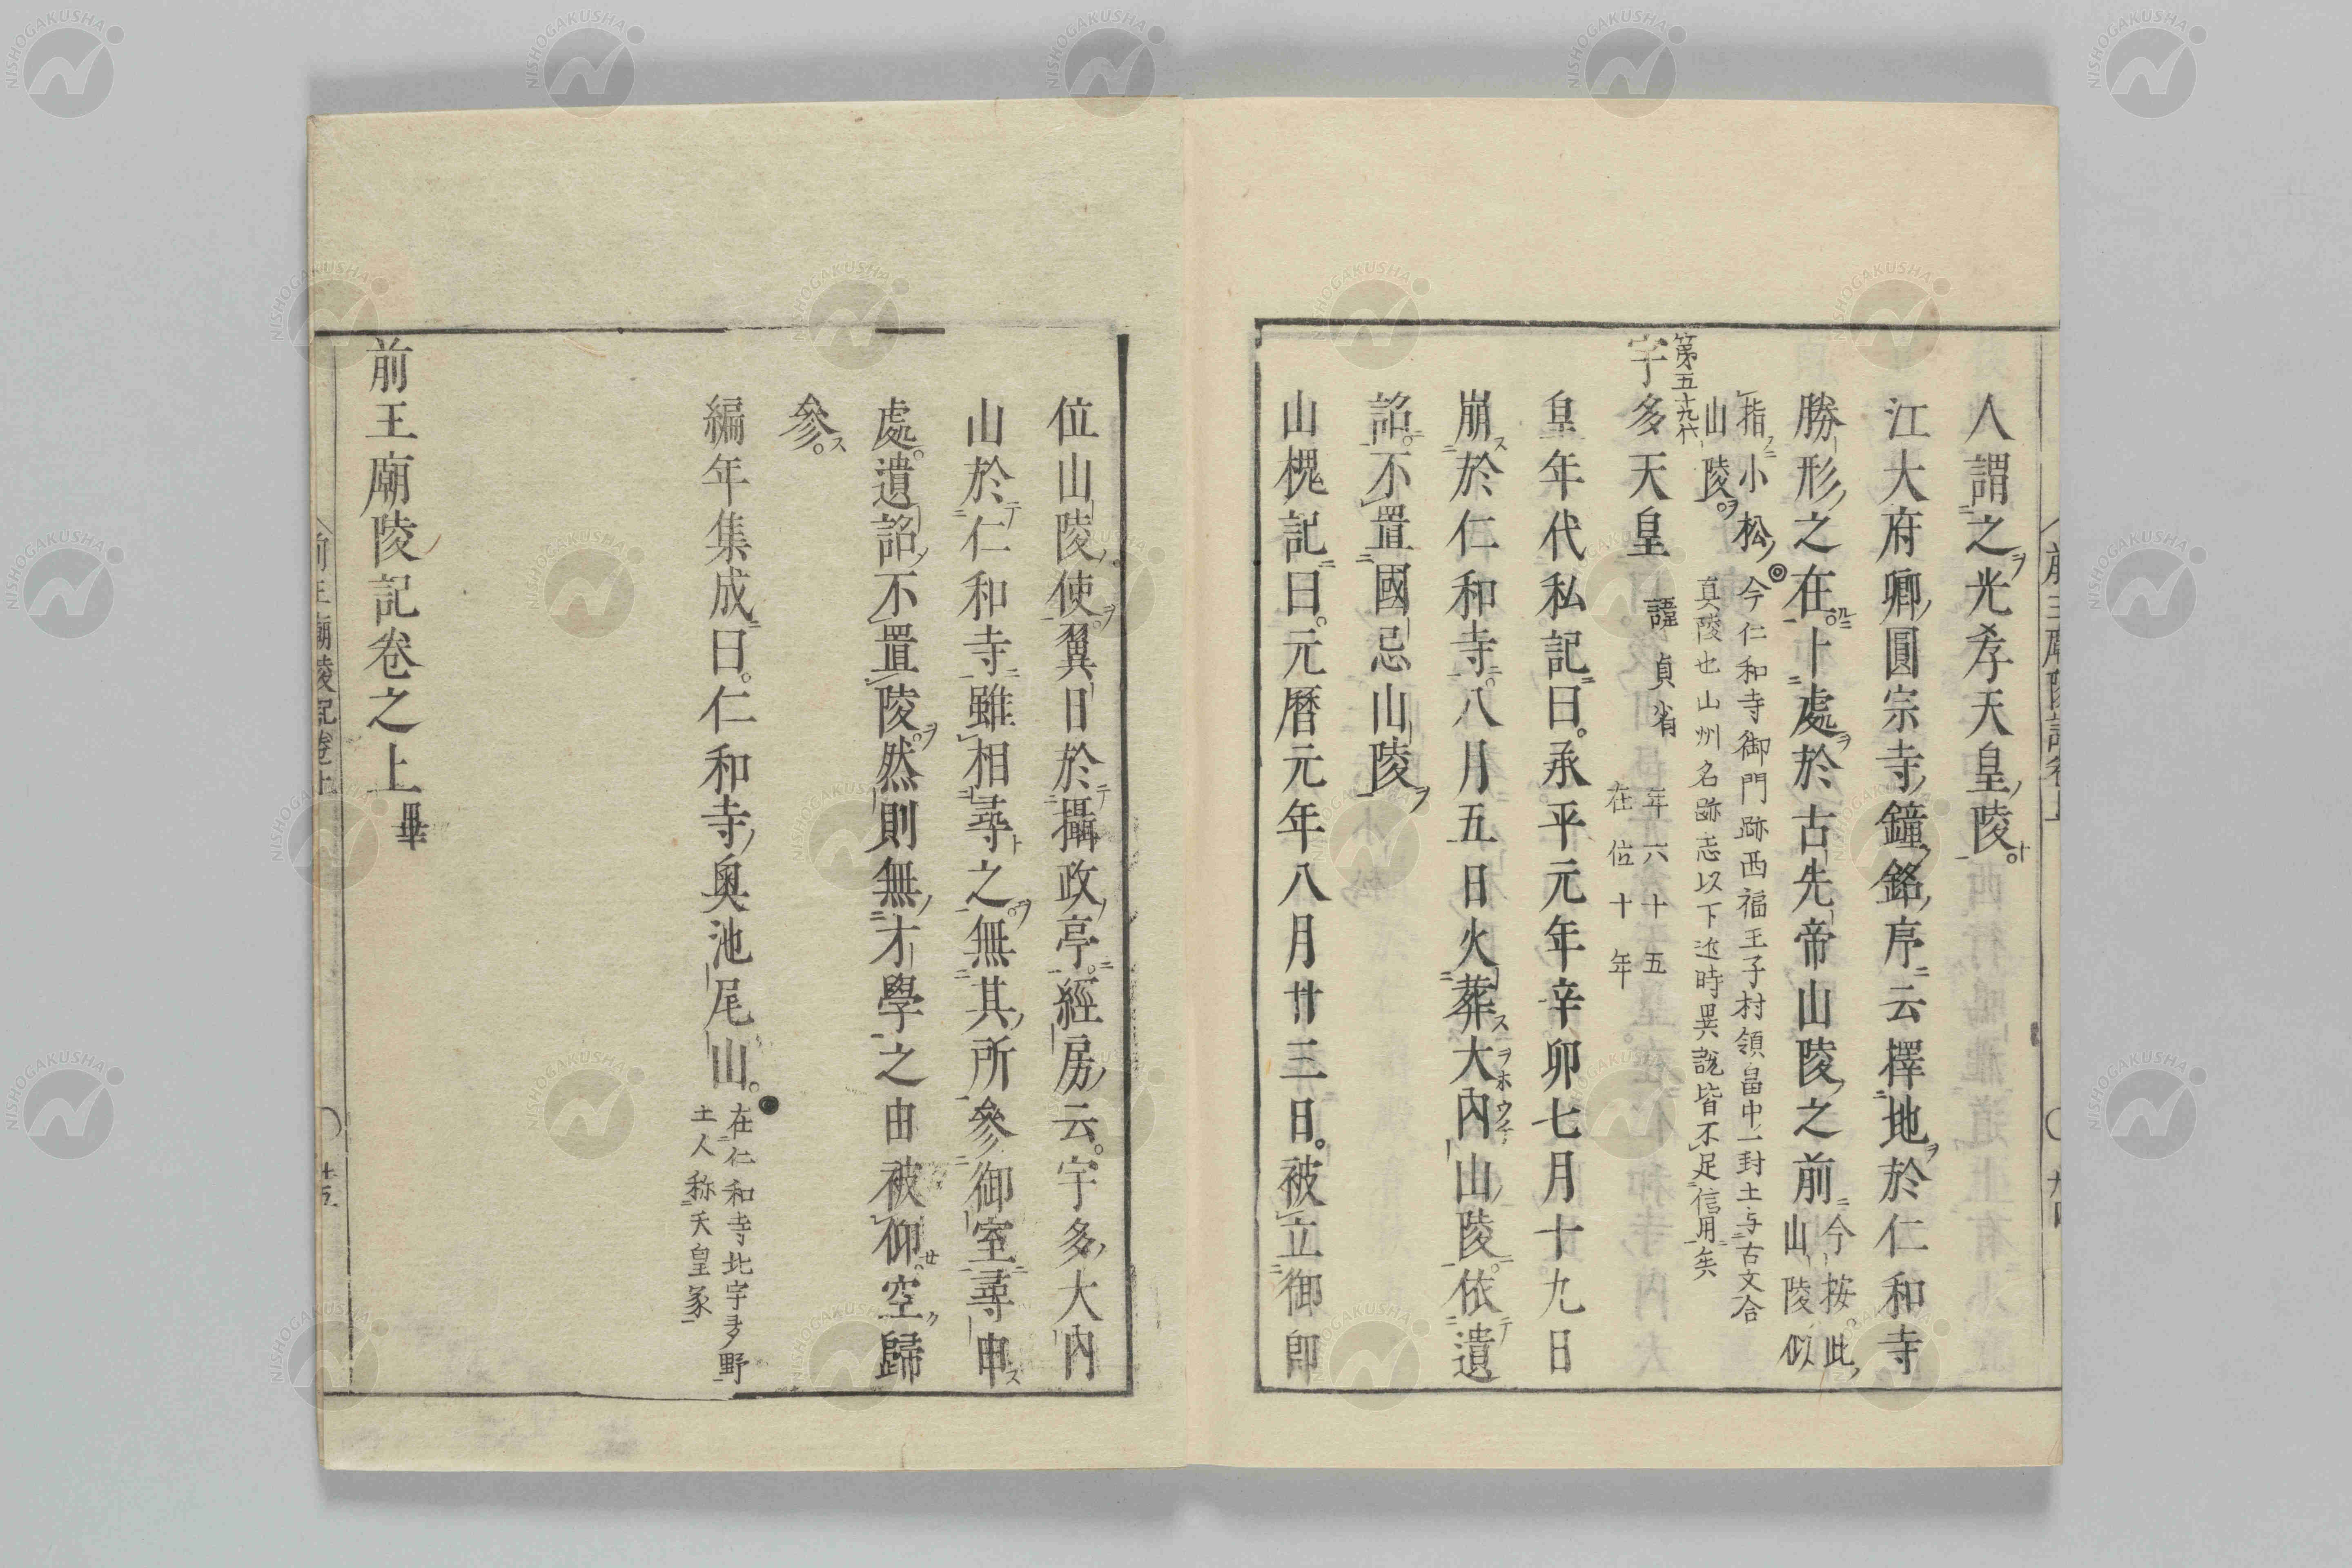 人謂之光孝天皇陵
江大府卿圓宗寺鐘銘序云擇地於仁和寺
勝形之在卜處於古先帝山陵之前今按此山陵似
指小松山陵◎今仁和寺御門跡西福王子村領畠中一封土与古文合
真陵也山州名跡志以下近時異説皆不足信用矣
第五十九代
宇多天皇 諱貞省 年六十五 在位十年
皇年代私記曰承平元年辛卯七月十九日
崩於仁和寺八月五日火葬大内山陵依遺
詔不置國忌山陵
山槐記曰元暦元年八月廿三日被立御即
位山陵使翼日於攝政亭經房云宇多大内
山於仁和寺雖相尋之無其所參御室尋申
處遺詔不置陵然則無才學之由被仰空歸
參
編年集成曰仁和寺奥池尾山●在仁和寺北宇多野
土人称天皇冢
前王廟陵記卷之上畢
前王廟陵記卷上
NISHOGAKUSHA